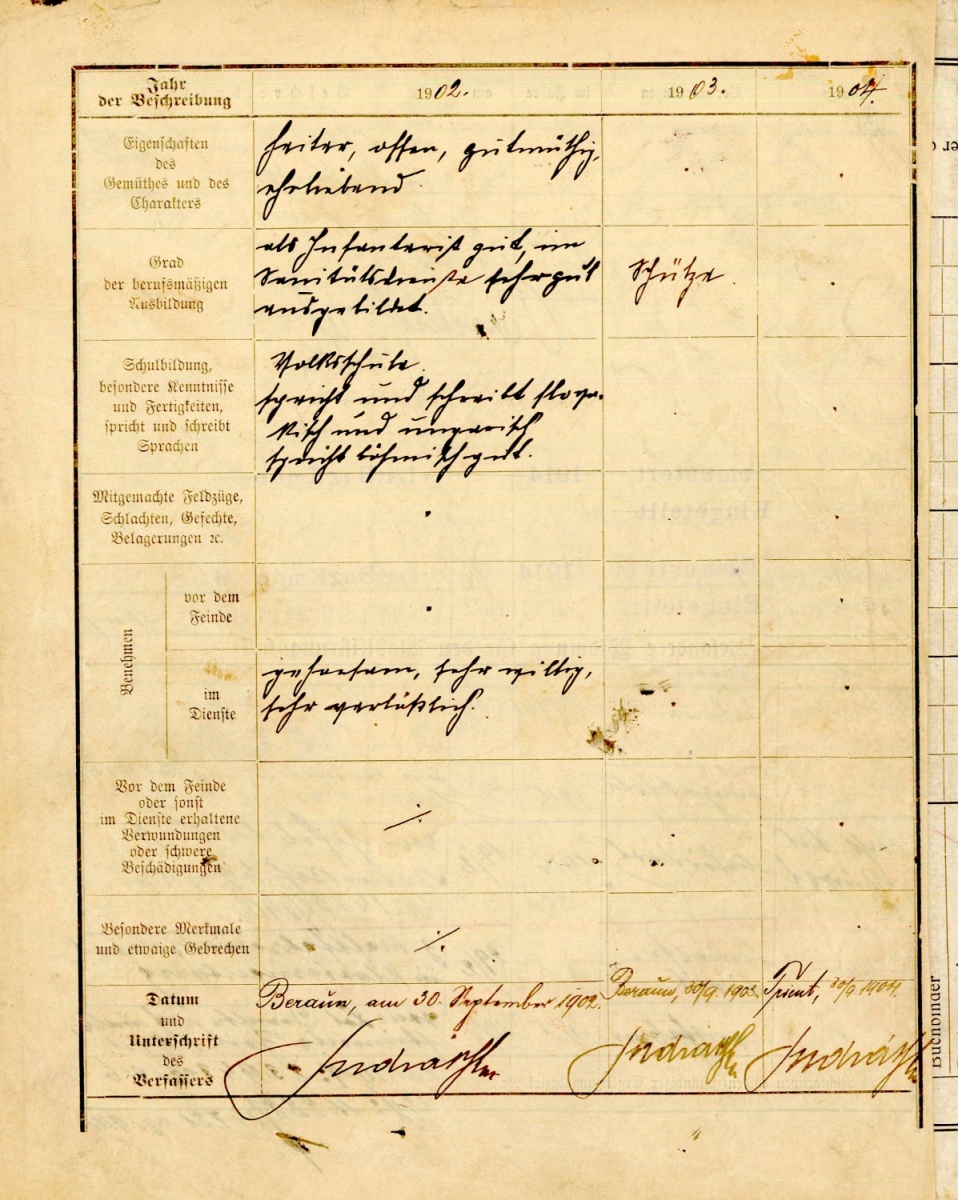 Jahr
der Beschreibung
1902.
1903.
1904.
Eigenschaften
des
Gemüthes und des
Charakters
heiter, offen, gutmüthig,
ehrliebend.
Grad
der berufsmäßigen
Ausbildung
als Infanterist gut, im
Sanitätsdienste sehr gut
ausgebildet.
Schütze.
Schulbildung,
besondere Kenntnisse
und Fertigkeiten,
spricht und schreibt
Sprachen
Volksschule.
spricht und schreibt slova-
kisch und ungarisch
spricht böhmisch gut.
Mitgemachte Feldzüge,
Schlachten, Gefechte,
Belagerungen ꝛc.
Benehmen
vor dem
Feinde
im
Dienste
gehorsam, sehr willig,
sehr verläßlich.
Vor dem Feinde
oder sonst
im Dienste erhaltene
Verwundungen
oder schwere
Beschädigungen
Besondere Merkmale
und etwaige Gebrechen
Datum
und
Unterschrift
des
Verfassers
Beraun, am 30. September 1902.
Beraun, 30/9. 1903.
Trient, 30/9 1904.